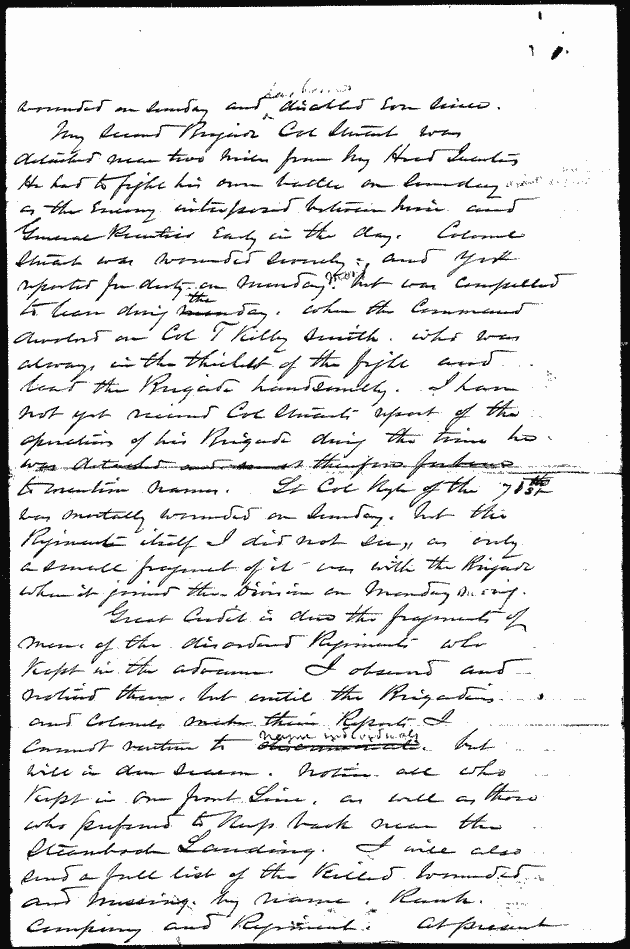 has been
wounded on Sunday and disabled Ever Since.
My Second Brigade Col Stuart was
detached near two miles from my Head Quarters
He had to fight his own battle on Sunday
as the Enemy interposed between him and
General Prentiss Early in the day. Colonel
Stuart was wounded severely, and yet
reported for duty on Monday morng but was compelled
to leave during the day. when the Command
devolved on Col T Kilby Smith. who was
always in the thickest of the fight and
lead the Brigade handsomely. I have
not yet received Col Stuarts report of the
operations of his Brigade during the time he
was detached and must therefore forbear
to mention names. Lt Col Kyle of the 71st
was mortally wounded on Sunday. but the
Regiment itself I did not see, as only
a small fragment of it was with the Brigade
when it joined the Division on Monday morng.
Great Credit is due the fragments of
men of the disordered Regiments who
Kept in the advance I observed and
noticed them. but until the Brigadiers
and Colonels make their Reports I
cannot venture to name individuals. but
will in due season. notice all who
Kept in our front Line. as well as those
who preferred to Keep back near the
Steamboat Landing. I will also
send a full list of the Killed Wounded
and missing. by name. Rank.
Company and Regiment. At present